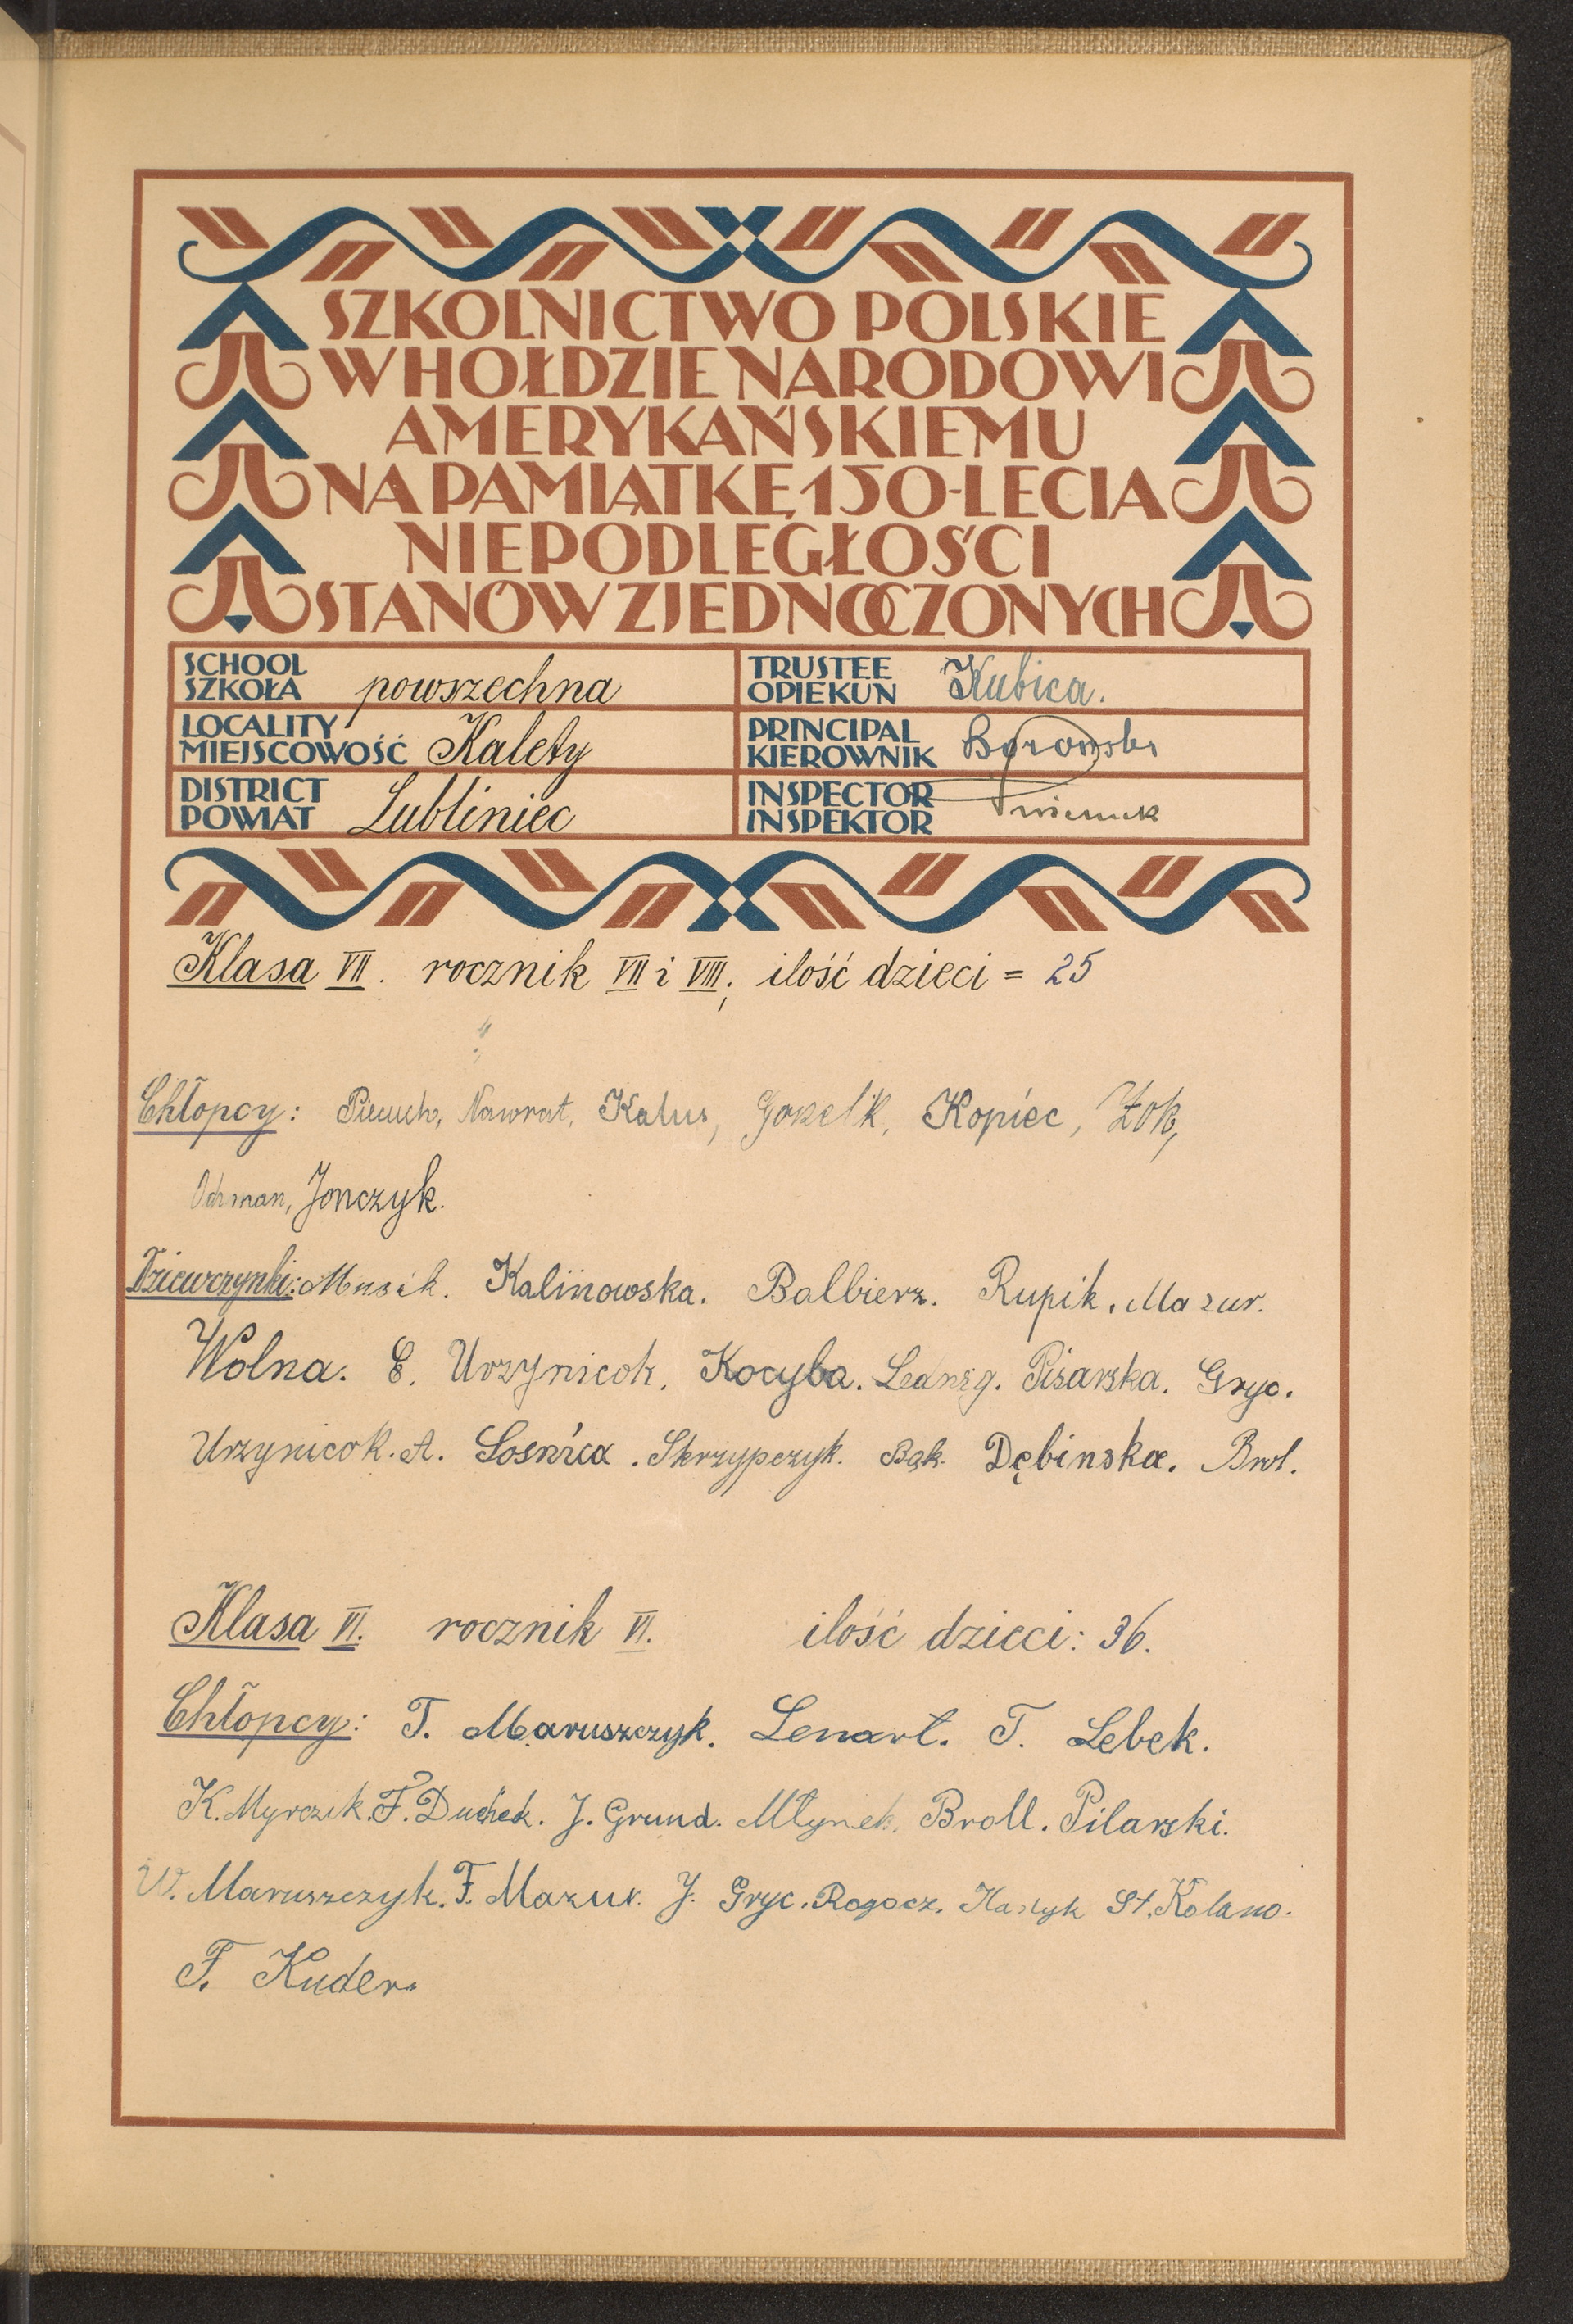 SZKOLNICTWO POLSKIE
W HOŁDZIE NARODOWI
AMERYKAŃSKIEMU
NA PAMIĄTKĘ 150-LECIA
NIEPODLEGŁOŚCI
STANÓW ZJEDNOCZONYCH
SCHOOL
SZKOŁA powszechna
TRUSTEE
OPIEKUN Kubica.
LOCALITY
MIEJSCOWOŚĆ Kalety
PRINCIPAL
KIEROWNIK Borowski
DISTRICT
POWIAT Lubliniec
INSPECTOR
INSPEKTOR
Klasa VII. rocznik VII i VIII; ilość dzieci = 25
Chłopcy: Piecuch, Nawrat, Kalus, Kopiec, Żok,
Ochman, Jonczyk.
Dziewczynki: Musik. Kalinowska. Balbierz. Rupik. Mazur.
Wolna. E. Urzynicok. Kocyba. Pisarska. Gryc.
Urzynicok. A. Sosnica. Skrzypczyk. Bąk. Dębinska. Brol.
Klasa VI. rocznik VI. ilość dzieci: 36.
Chłopcy: T. Maruszczyk. Lenart. T. Lebek.
K. Myrczik. F. Duchek. J. Grund. Młynek. Broll. Pilarski.
W. Maruszczyk. F. Mazur. J. Gryc. Rogocz. St. Kolano.
F. Kuder.